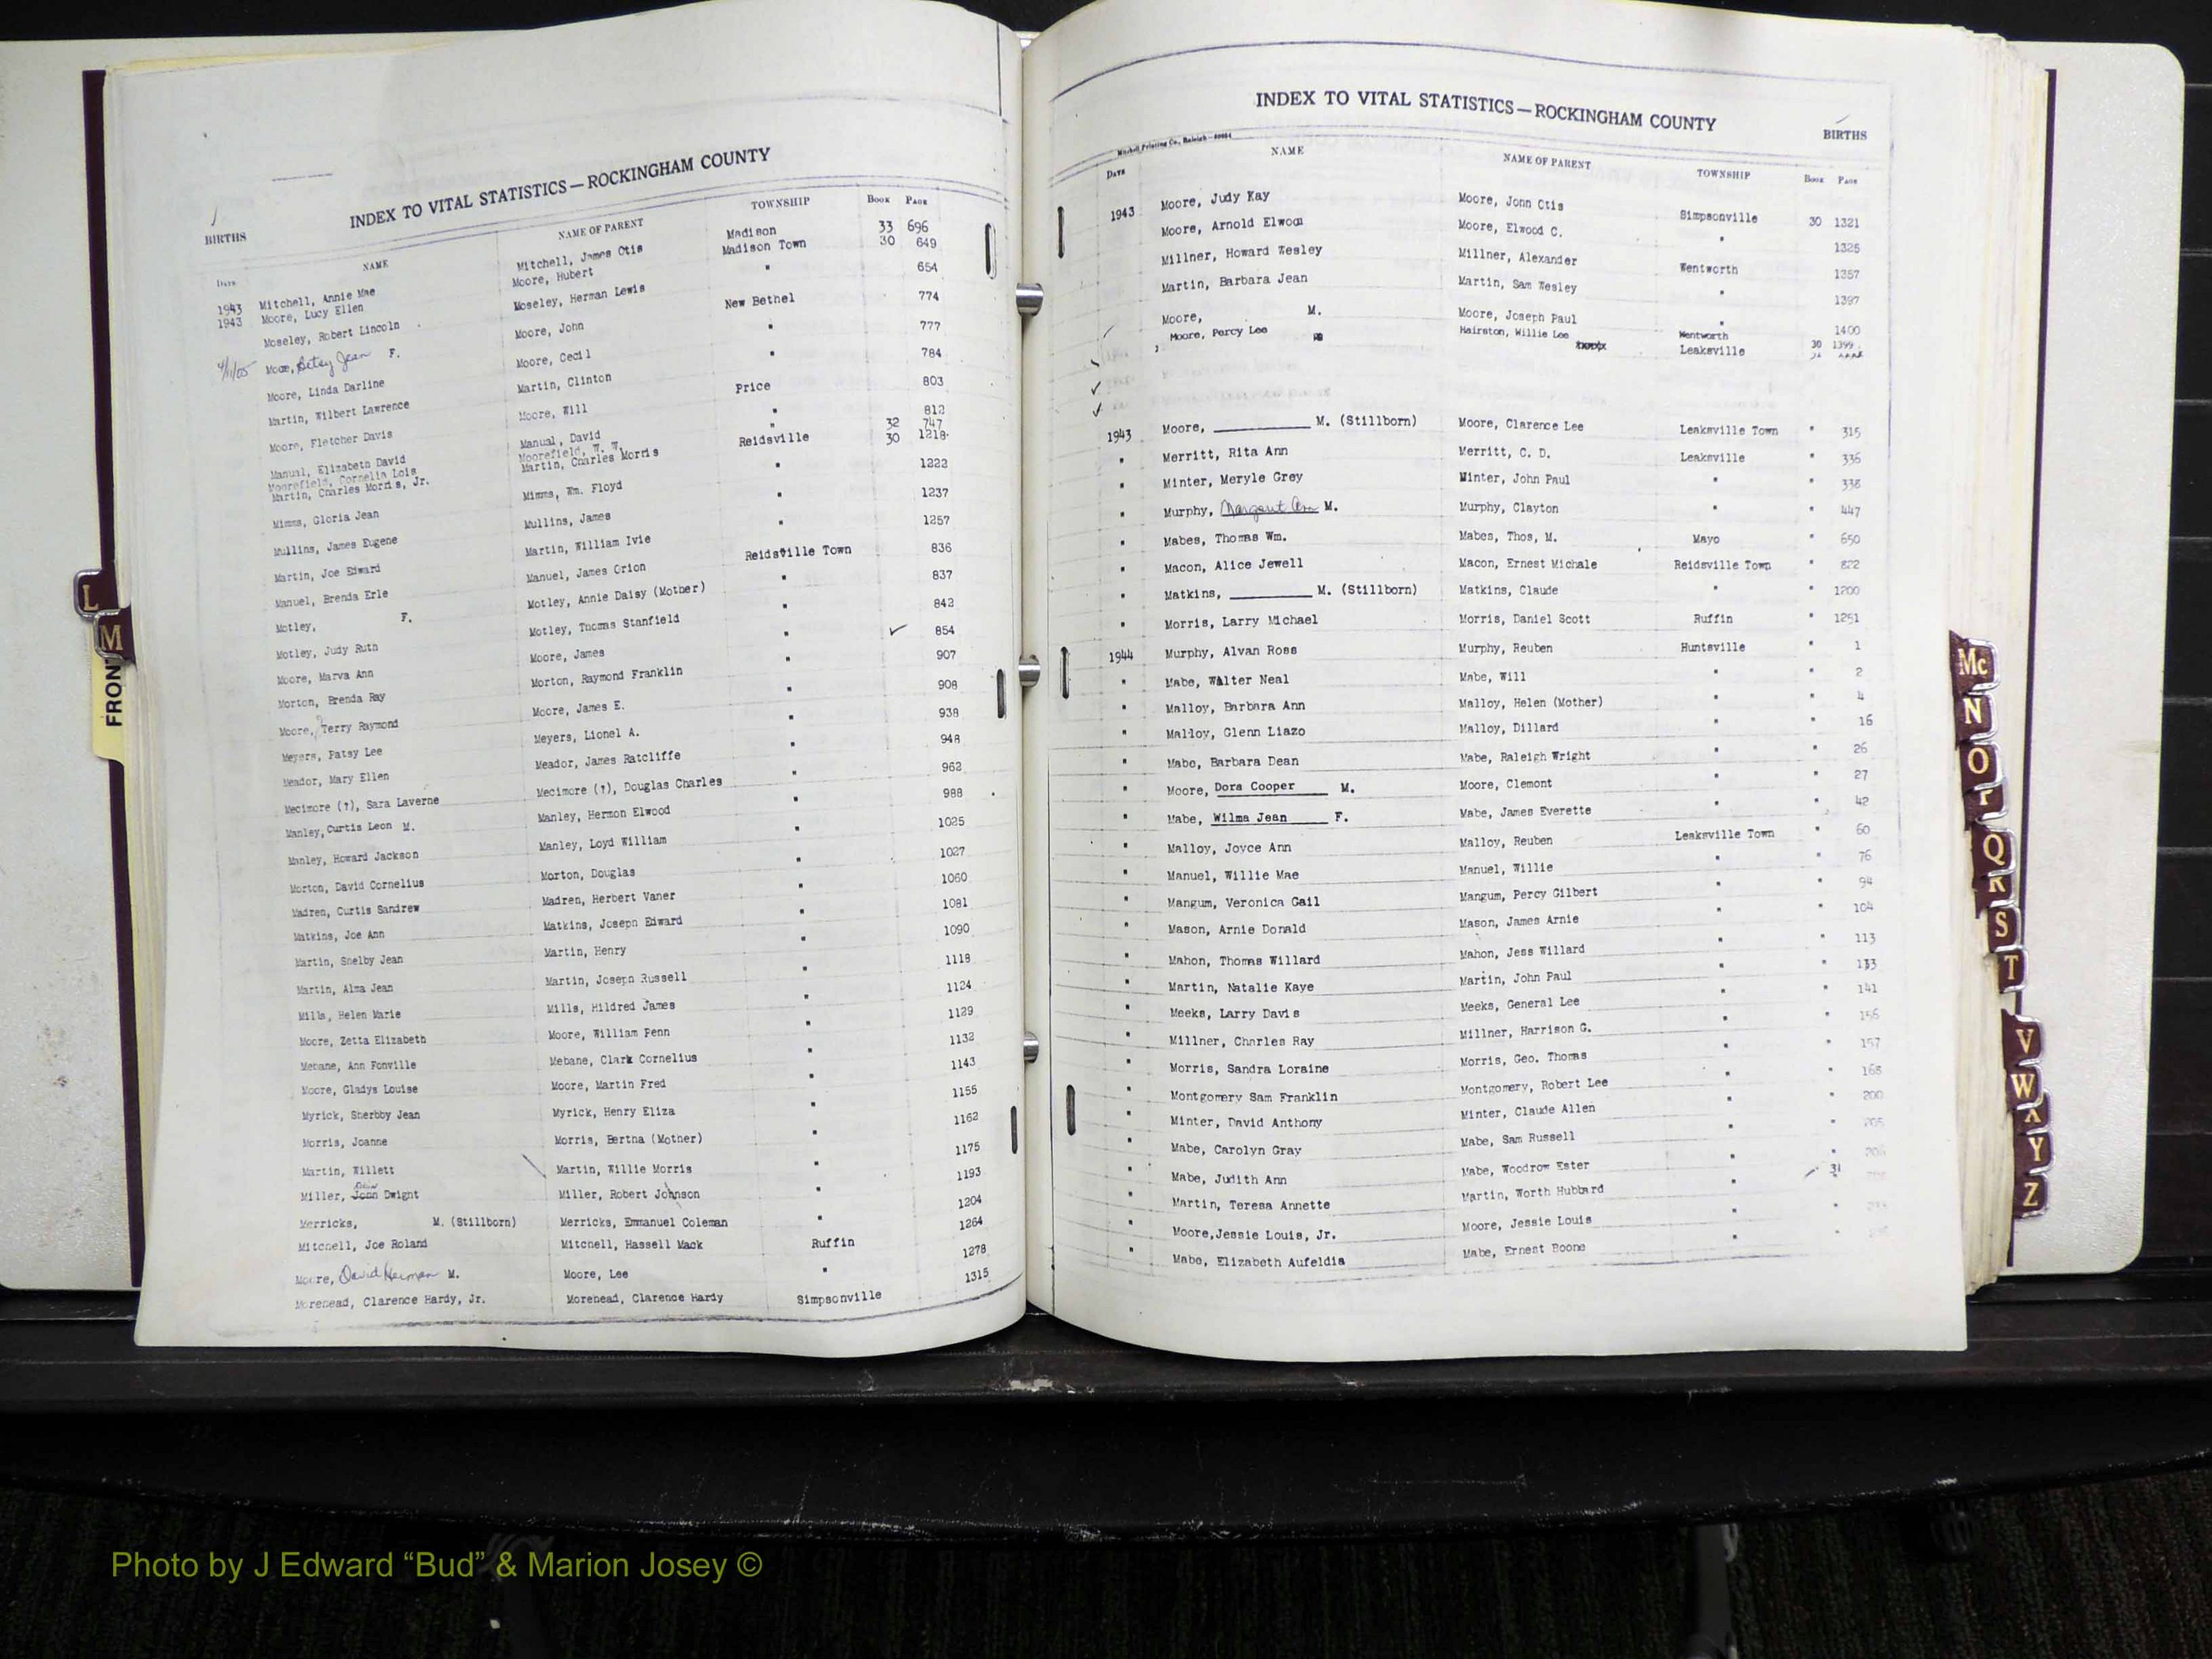 INDEX TO VITAL STATISTICS—ROCKINGHAM COUNTY
BIRTHS
DATE NAME NAME OF PARENT TOWNSHIP BOOK PAGE
1943 Mitchell, Annie Mae Mitchell, James Otis Madison 33 696
1943 Moore, Lucy Ellen Moore, Hubert Madison Town 30 649
Moseley, Robert Lincoln Moseley, Herman Lewis " 654
4/11/05 Moore, Betsy Jean F. Moore, John New Bethel 774
Moore, Linda Darline Moore, Cecil " 777
Martin, Wilbert Lawrence Martin, Clinton " 784
Moore, Fletcher Davis Moore, Will Price 803
Manual, Elizabeth David Manual, David " 812
Moorefield, Cornelia Lois Moorefield, W. W. " 32 747
Martin, Charles Morris, Jr. Martin, Charles Morris Reidsville 30 1218
Mimms, Gloria Jean Mimms, Wm. Floyd " 1222
Mullins, James Eugene Mullins, James " 1237
Martin, Joe Edward Martin, William Ivie " 1257
Manuel, Brenda Erle Manuel, James Orion Reidsville Town 836
Motley, F. Motley, Annie Daisy (Mother) " 837
Motley, Judy Ruth Motley, Thomas Stanfield " 842
Moore, Marva Ann Moore, James " ✓ 854
Morton, Brenda Ray Morton, Raymond Franklin " 907
Moore, Terry Raymond Moore, James E. " 908
Meyers, Patsy Lee Meyers, Lionel A. " 938
Meador, Mary Ellen Meador, James Ratcliffe " 948
Mecimore (?), Sara Laverne Mecimore (?), Douglas Charles " 962
Manley, Curtis Leon M. Manley, Hermon Elwood " 988
Manley, Howard Jackson Manley, Loyd William " 1025
Morton, David Cornelius Morton, Douglas " 1027
Madren, Curtis Sandrew Madren, Herbert Vaner " 1060
Matkins, Joe Ann Matkins, Joseph Edward " 1081
Martin, Shelby Jean Martin, Henry " 1090
Martin, Alma Jean Martin, Joseph Russell " 1118
Mills, Helen Marie Mills, Hildred James " 1124
Moore, Zetta Elizabeth Moore, William Penn " 1129
Mebane, Ann Fonville Mebane, Clark Cornelius " 1132
Moore, Gladys Louise Moore, Martin Fred " 1143
Myrick, Sherbby Jean Myrick, Henry Eliza " 1155
Morris, Joanne Morris, Bertha (Mother) " 1162
Martin, Willett Martin, Willie Morris " 1175
Miller, John Dwight Miller, Robert Johnson " 1193
Merricks, M. (Stillborn) Merricks, Emmanuel Coleman " 1204
Mitchell, Joe Roland Mitchell, Hassell Mack Ruffin 1264
Moore, David Herman M. Moore, Lee " 1278
Morehead, Clarence Hardy, Jr. Morehead, Clarence Hardy Simpsonville 1315
L
M
FRONT
INDEX TO VITAL STATISTICS—ROCKINGHAM COUNTY
BIRTHS
Mitchell Printing Co., Raleigh
DATE NAME NAME OF PARENT TOWNSHIP BOOK PAGE
1943 Moore, Judy Kay Moore, John Otis Simpsonville 30 1321
Moore, Arnold Elwood Moore, Elwood C. " 1325
Millner, Howard Wesley Millner, Alexander Wentworth 1357
Martin, Barbara Jean Martin, Sam Wesley " 1397
Moore, M. Moore, Joseph Paul " 1400
Moore, Percy Lee Hairston, Willie Lee Wentworth 30 1399
Leaksville
1943 Moore, M. (Stillborn) Moore, Clarence Lee Leaksville Town " 315
" Merritt, Rita Ann Merritt, C. D. Leaksville " 336
" Minter, Meryle Grey Minter, John Paul " " 338
" Murphy, Margaret Ann M. Murphy, Clayton " " 447
" Mabes, Thomas Wm. Mabes, Thos, M. Mayo " 650
" Macon, Alice Jewell Macon, Ernest Michale Reidsville Town " 822
" Matkins, M. (Stillborn) Matkins, Claude " " 1200
" Morris, Larry Michael Morris, Daniel Scott Ruffin " 1251
1944 Murphy, Alvan Ross Murphy, Reuben Huntsville " 1
" Mabe, Walter Neal Mabe, Will " " 2
" Malloy, Barbara Ann Malloy, Helen (Mother) " " 4
" Malloy, Glenn Liazo Malloy, Dillard " " 16
" Mabe, Barbara Dean Mabe, Raleigh Wright " " 26
" Moore, Dora Cooper M. Moore, Clemont " " 27
" Mabe, Wilma Jean F. Mabe, James Everette " " 42
" Malloy, Joyce Ann Malloy, Reuben Leaksville Town " 60
" Manuel, Willie Mae Manuel, Willie " " 76
" Mangum, Veronica Gail Mangum, Percy Gilbert " " 94
" Mason, Arnie Donald Mason, James Arnie " " 104
" Mahon, Thomas Willard Mahon, Jess Willard " " 113
" Martin, Natalie Kaye Martin, John Paul " " 133
" Meeks, Larry Davis Meeks, General Lee " " 141
" Millner, Charles Ray Millner, Harrison G. " " 156
" Morris, Sandra Loraine Morris, Geo. Thomas " " 157
" Montgomery Sam Franklin Montgomery, Robert Lee " " 168
" Minter, David Anthony Minter, Claude Allen " " 200
" Mabe, Carolyn Gray Mabe, Sam Russell " "
" Mabe, Judith Ann Mabe, Woodrow Ester " "
" Martin, Teresa Annette Martin, Worth Hubbard " 31
" Moore, Jessie Louis, Jr. Moore, Jessie Louis " "
" Mabe, Elizabeth Aufeldia Mabe, Ernest Boone " "
Mc
N
O
P
Q
R
S
T
V
W
X
Y
Z
Photo by J Edward “Bud” & Marion Josey ©